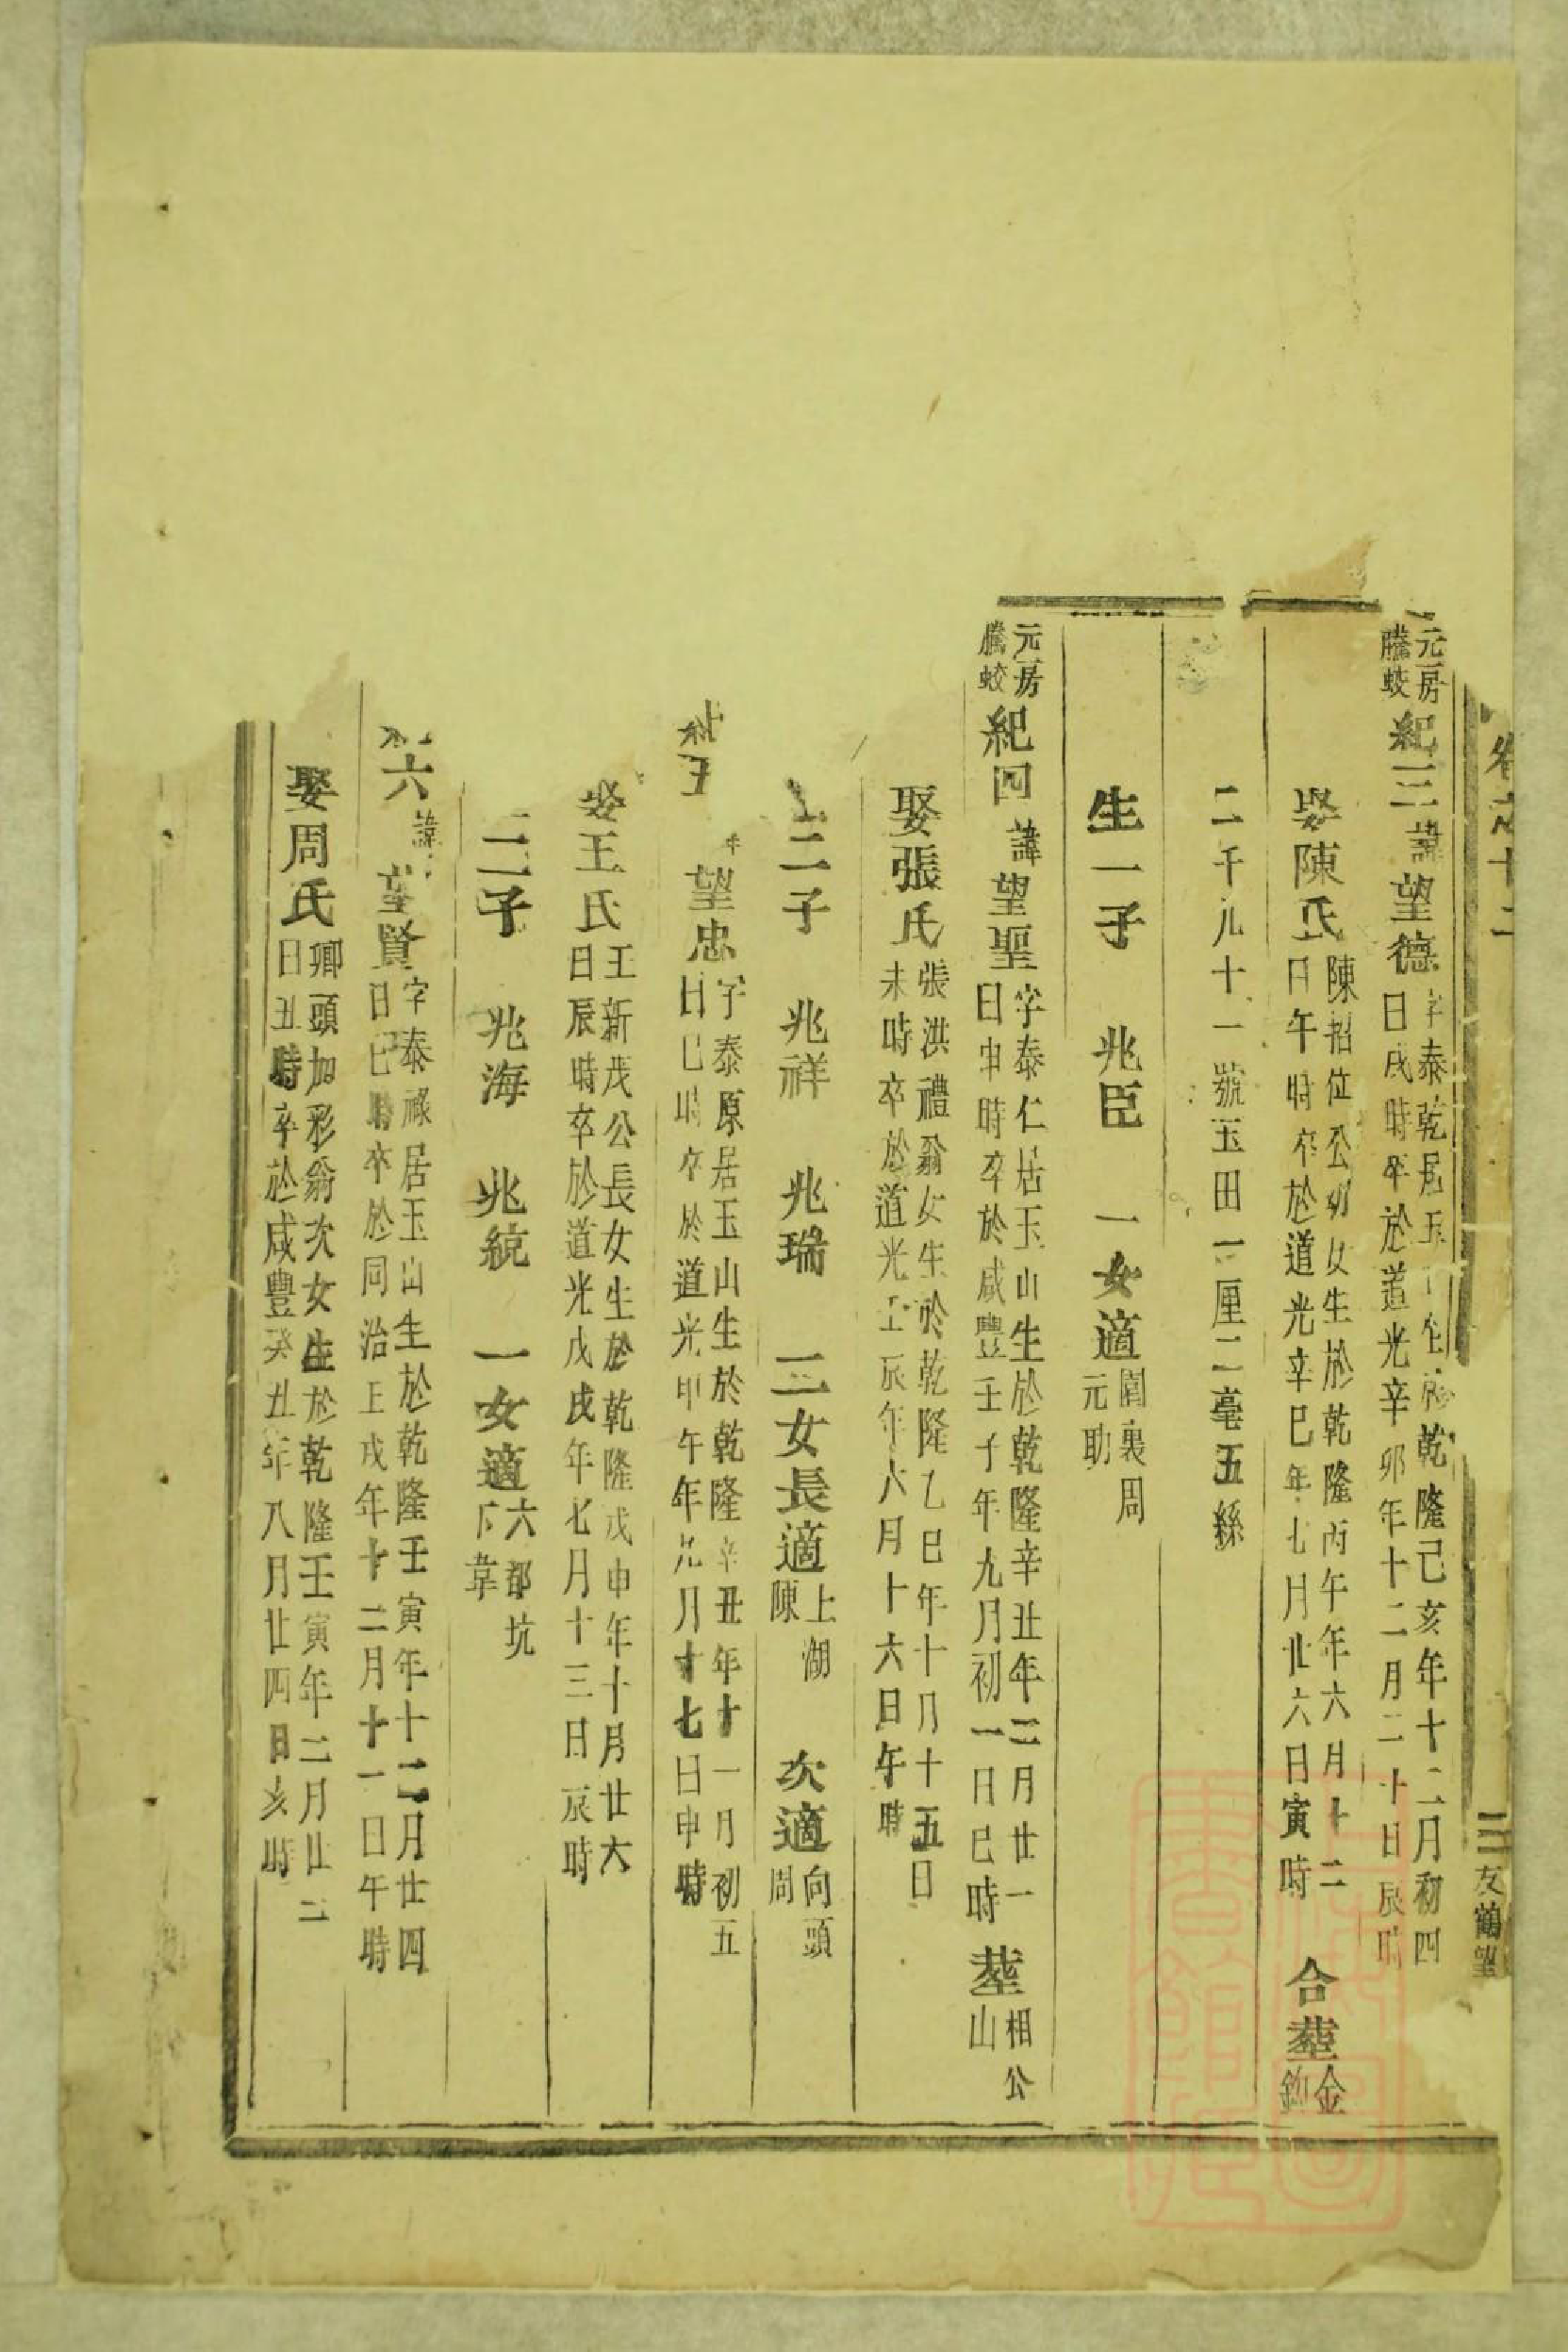 卷之十二 三 友鶴望
元房騰蛟 紀三 諱望德 字泰乾居玉山生於乾隆己亥年十二月初四日戌時卒於道光辛卯年十二月二十日辰時
娶陳氏 陳招位公幼女生於乾隆丙午年六月十二日午時卒於道光辛巳年七月廿六日寅時 合塟金
二千九十一號玉田一厘二毫五絲
生一子 兆臣 一女適園裏周元助
元房騰蛟 紀四 諱望聖 字泰仁居玉山生於乾隆辛丑年三月廿一日申時卒於咸豐壬子年九月初一日巳時 塟相公山
娶張氏 張洪禮翁女生於乾隆乙巳年十月十五日未時卒於道光壬辰年六月十六日午時
二子 兆祥 兆瑞 二女長適上湖陳 次適向頭周
五 望忠 字泰原居玉山生於乾隆辛丑年十一月初五日巳時卒於道光甲午年九月十七日申時
娶王氏 王新茂公長女生於乾隆戊申年十月廿六日辰時卒於道光戊戌年七月十三日辰時
二子 兆海 兆統 一女適六都坑
六 諱望賢 字泰祿居玉山生於乾隆壬寅年十二月廿四日巳時卒於同治壬戌年十二月十一日午時
娶周氏 卿頭加彩翁次女生於乾隆壬寅年二月廿二日丑時卒於咸豐癸丑年八月廿四日亥時